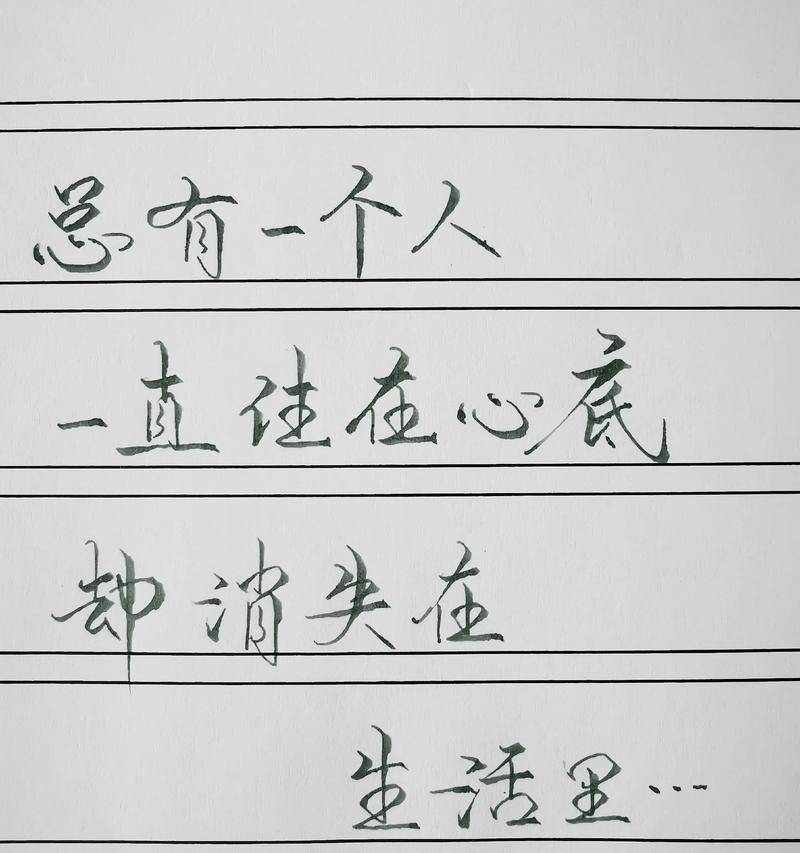 总有一个人
一直住在心底
却消失在
生活里…